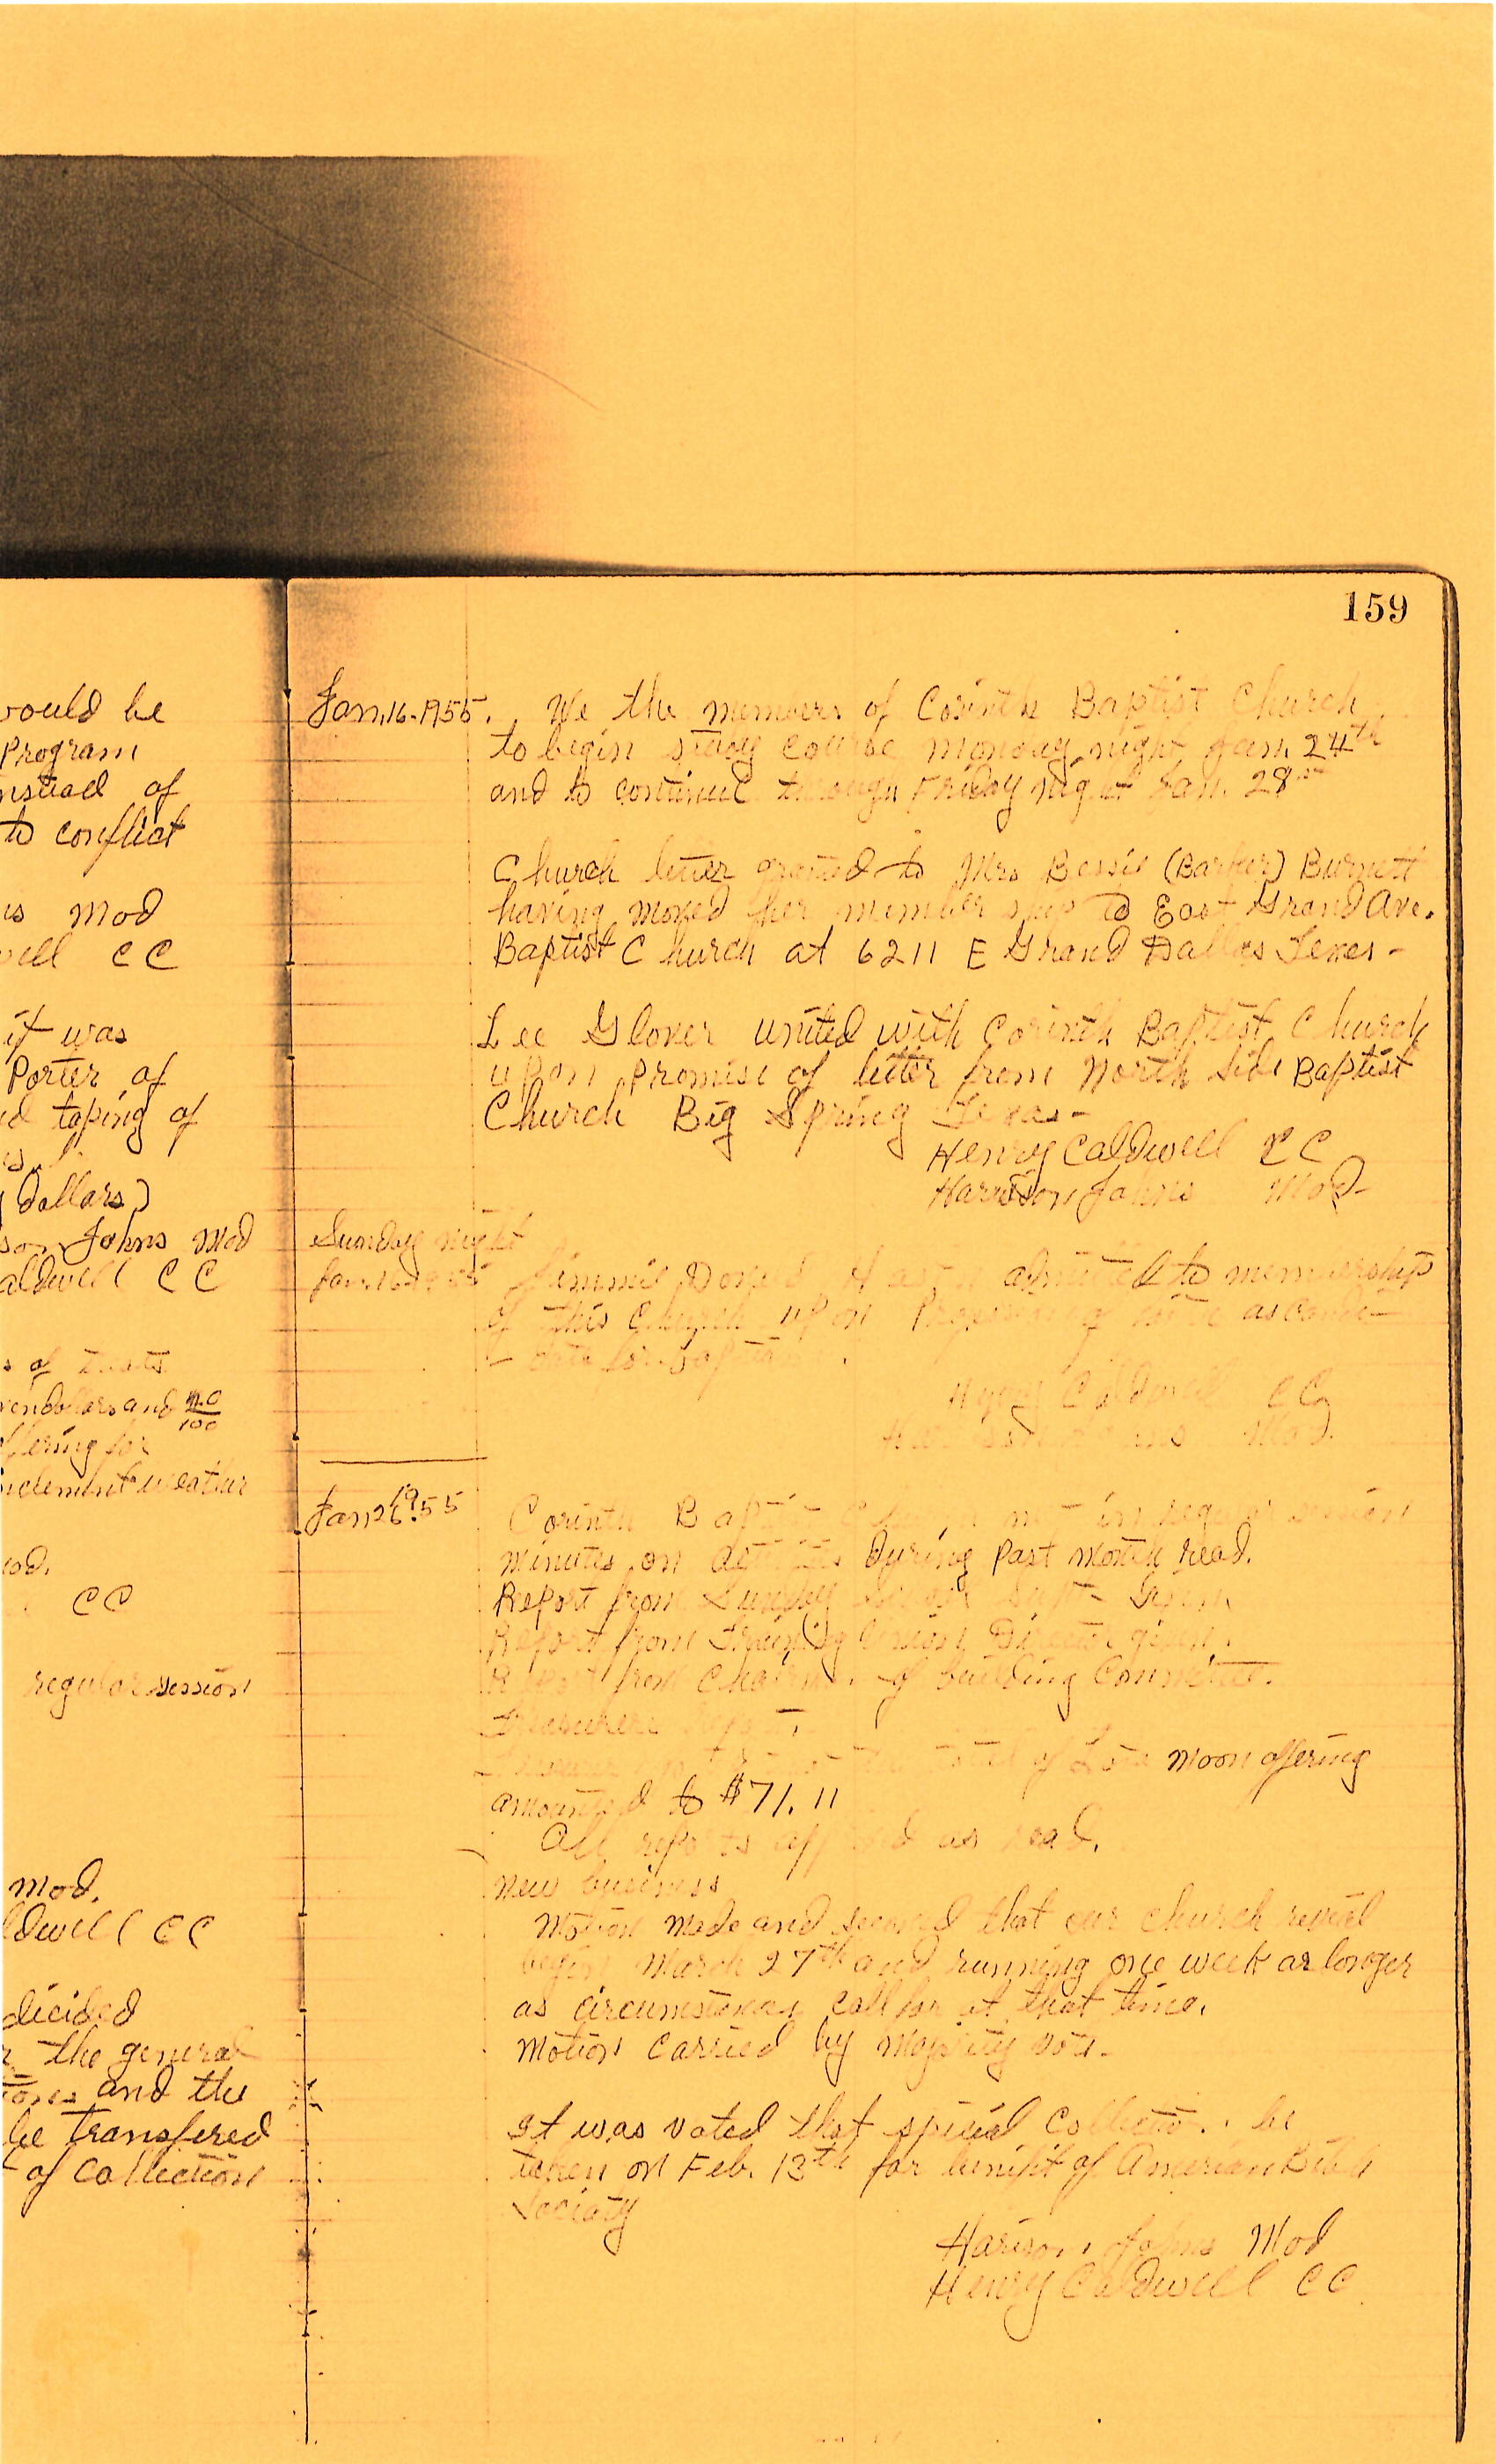 159
would be
Program
instead of
to conflict
Mod
CC
it was
Porter of
taping of
dollars)
Johns Mod
Caldwell CC
of
dollars and 20/100
offering for
inclement weather
CC
regular session
Mod.
Caldwell CC
decided
the general
and the
be transfered
of collection
Jan. 16-1955. We the members of Corinth Baptist Church
to begin study course monday night Jan. 24th
and to continue through Friday night Jan. 28th
Church letter granted to Mrs Bessie (Barker) Burnett
having moved her membership to East Grand Ave.
Baptist Church at 6211 E Grand Dallas Texes-
Lee Glover united with Corinth Baptist Church
upon promise of letter from North Side Baptist
Church Big Spring Texas-
Henry Caldwell CC
Harrison Johns Mod-
Sunday night
Jan. 16-1955 Jimmie admitted to membership
of this Church upon of as candi-
date for
Henry Caldwell CC
Mod.
Jan 26. 1955 Corinth Baptist in regular session
minutes on during past month read.
Report from Sunday School Supt. given
Report from Training Union Director given.
Report from Chairman of building Committee.
Treasurers report.
of Moon offering
amounted to $71.11
All reports as read.
new business
Motion made and second that our church revival
begin March 27th and running one week or longer
as circumstances call for at that time.
Motion carried by majority vote-
It was voted that special collection be
taken on Feb. 13th for benifit of American Bible
Society
Harison Johns Mod
Henry Caldwell CC